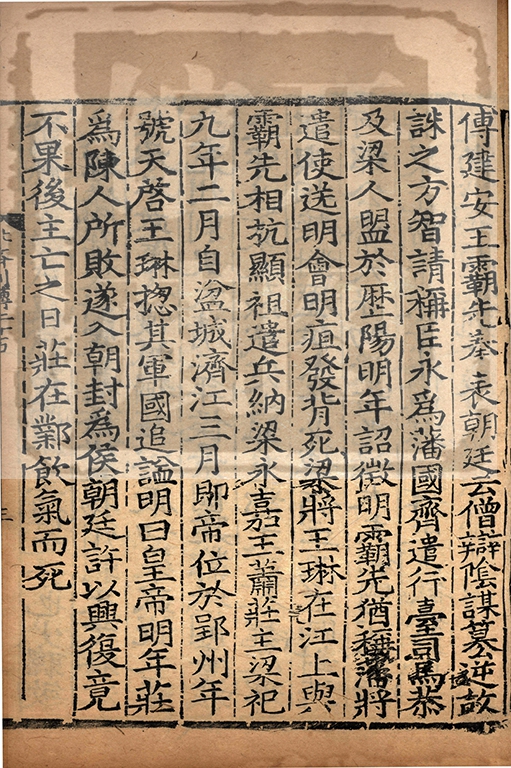 傅建安王霸先奉表朝廷云僧辯陰謀篡逆故
誅之方智請稱臣永爲藩國齊遣行臺司馬恭
及梁人盟於歷陽明年詔徵明霸先猶稱藩將
遣使送明會明疽發背死梁將王琳在江上與
霸先相抗顯祖遣兵納梁永嘉王蕭莊主梁祀
九年二月自湓城濟江三月即帝位於郢州年
號天啓王琳揔其軍國追謚明曰皇帝明年莊
爲陳人所敗遂入朝封爲侯朝廷許以興復竟
不果後主亡之日莊在鄴飲氣而死